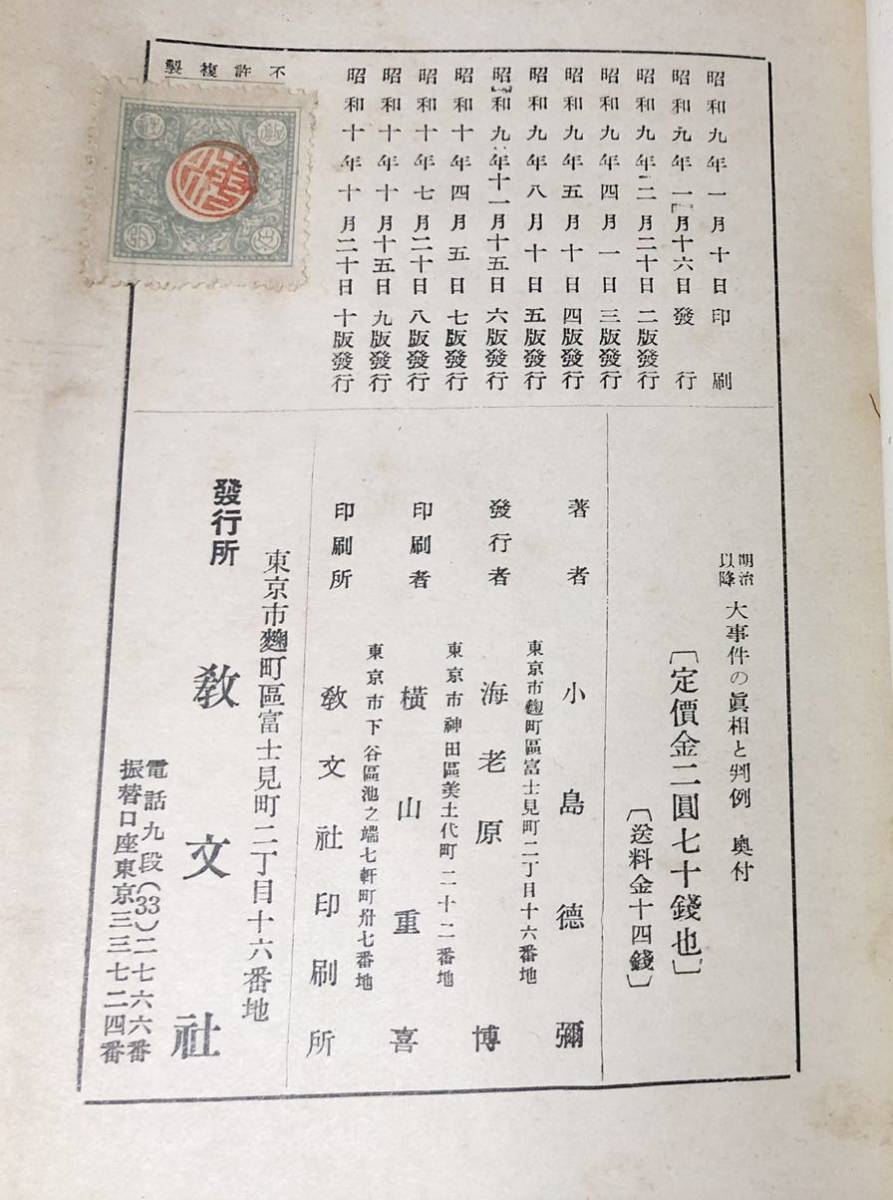 昭和九年一月十日印刷
昭和九年一月十六日發行
昭和九年二月二十日二版發行
昭和九年四月一日三版發行
昭和九年五月十日四版發行
昭和九年八月十日五版發行
昭和九年十一月十五日六版發行
昭和十年四月五日七版發行
昭和十年七月二十日八版發行
昭和十年十月十五日九版發行
昭和十年十月二十日十版發行
不許複製
明治以降 大事件の眞相と判例 奥付
〔定價金二圓七十錢也〕
〔送料金十四錢〕
著者 小島德彌
東京市麴町區富士見町二丁目十六番地
發行者 海老原博
東京市神田區美土代町二十二番地
印刷者 橫山重喜
東京市下谷區池之端七軒町卅七番地
印刷所 敎文社印刷所
東京市麴町區富士見町二丁目十六番地
發行所 敎文社
電話九段(33)二七六六番
振替口座東京三三七二四番